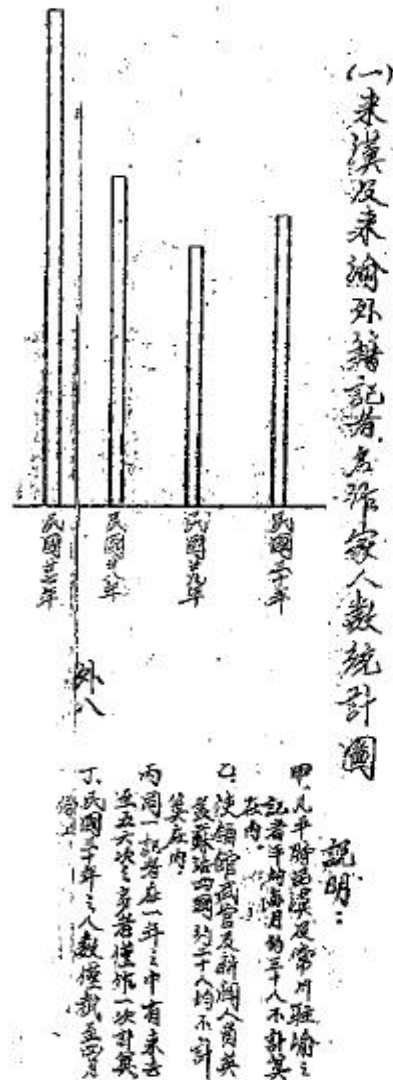 (一)来漢及来渝外籍記者名作家人数統計圖
民國三十年
民國廿九年
民國廿八年
民國廿七年
外八
說明：
甲、凡平時駐漢及常川駐渝之
記者平均每月約三十人不計算
在内。
乙、使領館武官及新聞人員英
美蘇法四國約二十人均不計
算在内。
丙、同一記者在一年之中有来去
至五六次之多者僅作一次計算
丁、民國三十年之人数僅截至四月
份止